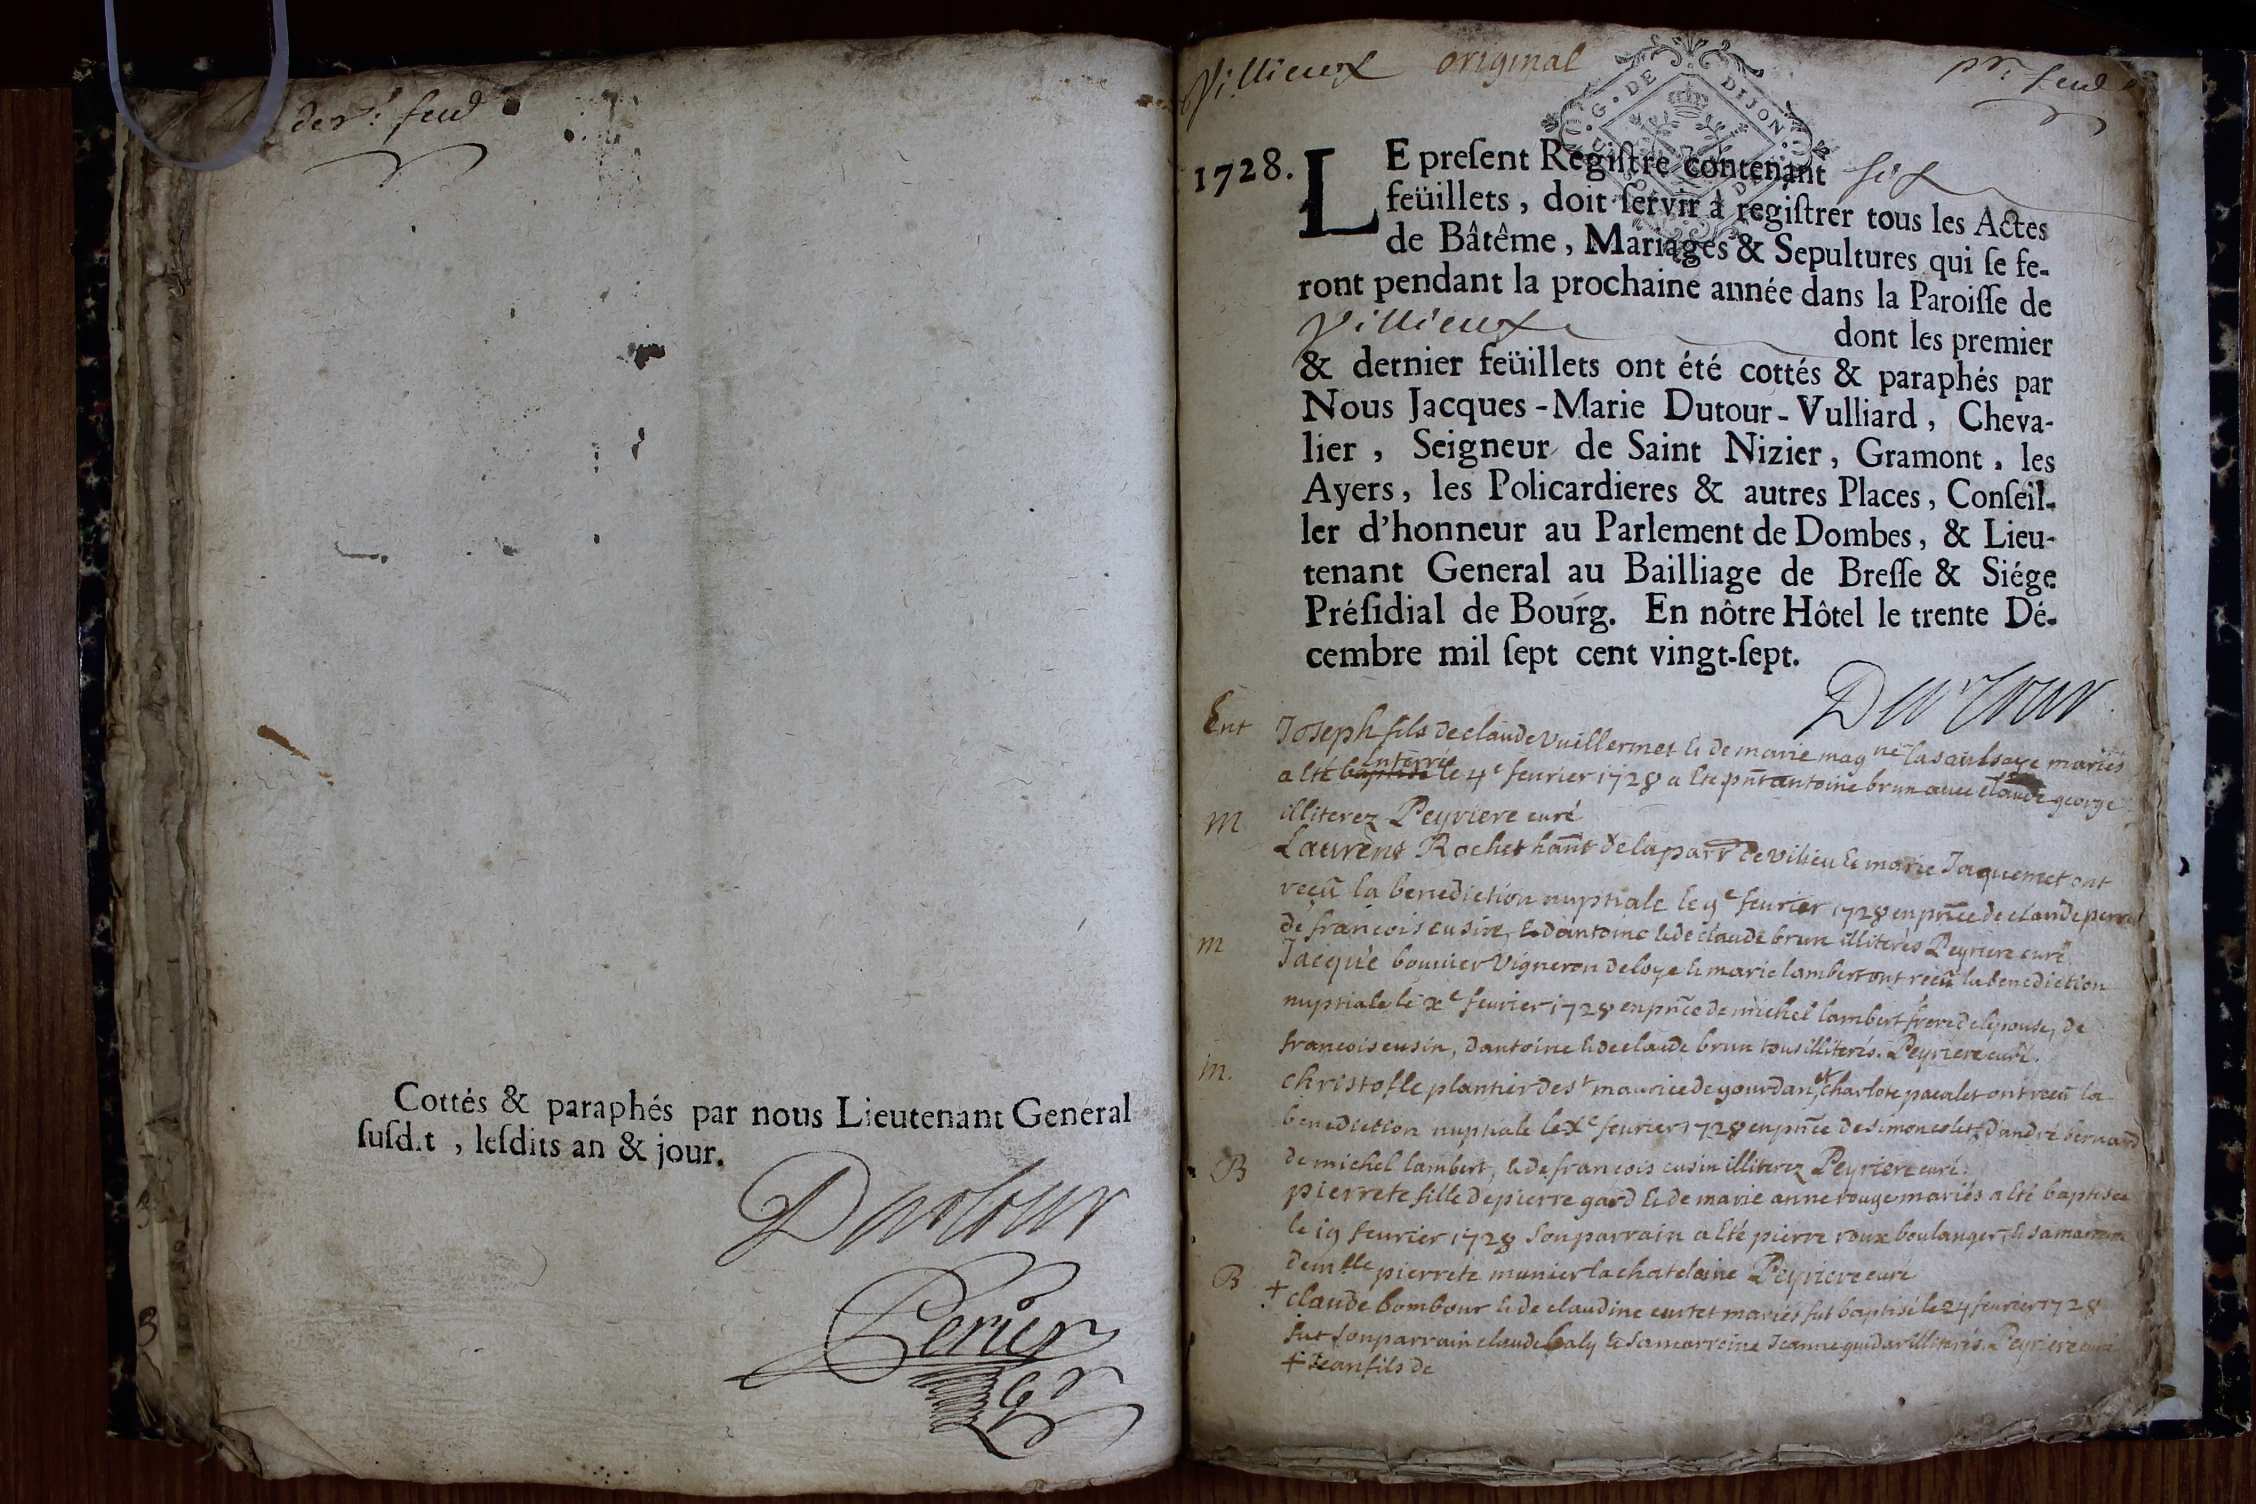 der.r feul
Cottés & paraphés par nous Lieutenant General
ſuſd.t , leſdits an & jour.
Dutour
Perier
Villieux original pr. feul
G. DE DIJON
1728. LE preſent Regiſtre contenant ſix
feüillets, doit ſervir à regiſtrer tous les Actes
de Bâtême, Mariages & Sepultures qui ſe fe-
ront pendant la prochaine année dans la Paroiſſe de
Villieux dont les premier
& dernier feüillets ont été cottés & paraphés par
Nous Jacques-Marie Dutour-Vulliard, Cheva-
lier, Seigneur de Saint Nizier, Gramont, les
Ayers, les Policardieres & autres Places, Conſeil-
ler d'honneur au Parlement de Dombes, & Lieu-
tenant General au Bailliage de Breſſe & Siége
Préſidial de Bourg. En nôtre Hôtel le trente Dé-
cembre mil ſept cent vingt-ſept.
Dutour
Ent Joseph fils de claude vuillermet & de marie magne lasaulsaye mariés
a eté baptisé enterré le 4e fevrier 1728 a ete pnt antoine brun avec claude george
illiterez Peyriere curé
M Laurens Rochet hant de la parr de vilieu & marie Jaquemet ont
reçû la benediction nuptiale le 9e fevrier 1728 en pnce de claude perret
de francois cusin, & dantoine & de claude brun illiterés Peyriere curé
M Jacque bouvier vigneron de loye & marie lambert ont reçû la benediction
nuptiale le xe fevrier 1728 en pnce de michel lambert frere de lepouse, de
francois cusin, dantoine & de claude brun tous illiterés. Peyriere curé.
M. christofle plantier de st maurice de gourdan, et charlote pacalet ont reçû la
benediction nuptiale le Xe fevrier 1728 en pnce de simon colet, dandré bernard
de michel lambert, & de francois cusin illiterez Peyriere curé.
B pierrete fille de pierre gard & de marie anne rouge mariés a eté baptisée
le 19 fevrier 1728 son parrain a eté pierre roux boulanger, & sa marraine
demlle pierrete munier la chatelaine Peyriere curé
B + claude bombour & de claudine curtet mariés fut baptisé le 24 fevrier 1728
fut son parrain claude baly & sa marreine Jeanne guidar illiterés. Peyriere curé
+ Jean fils de